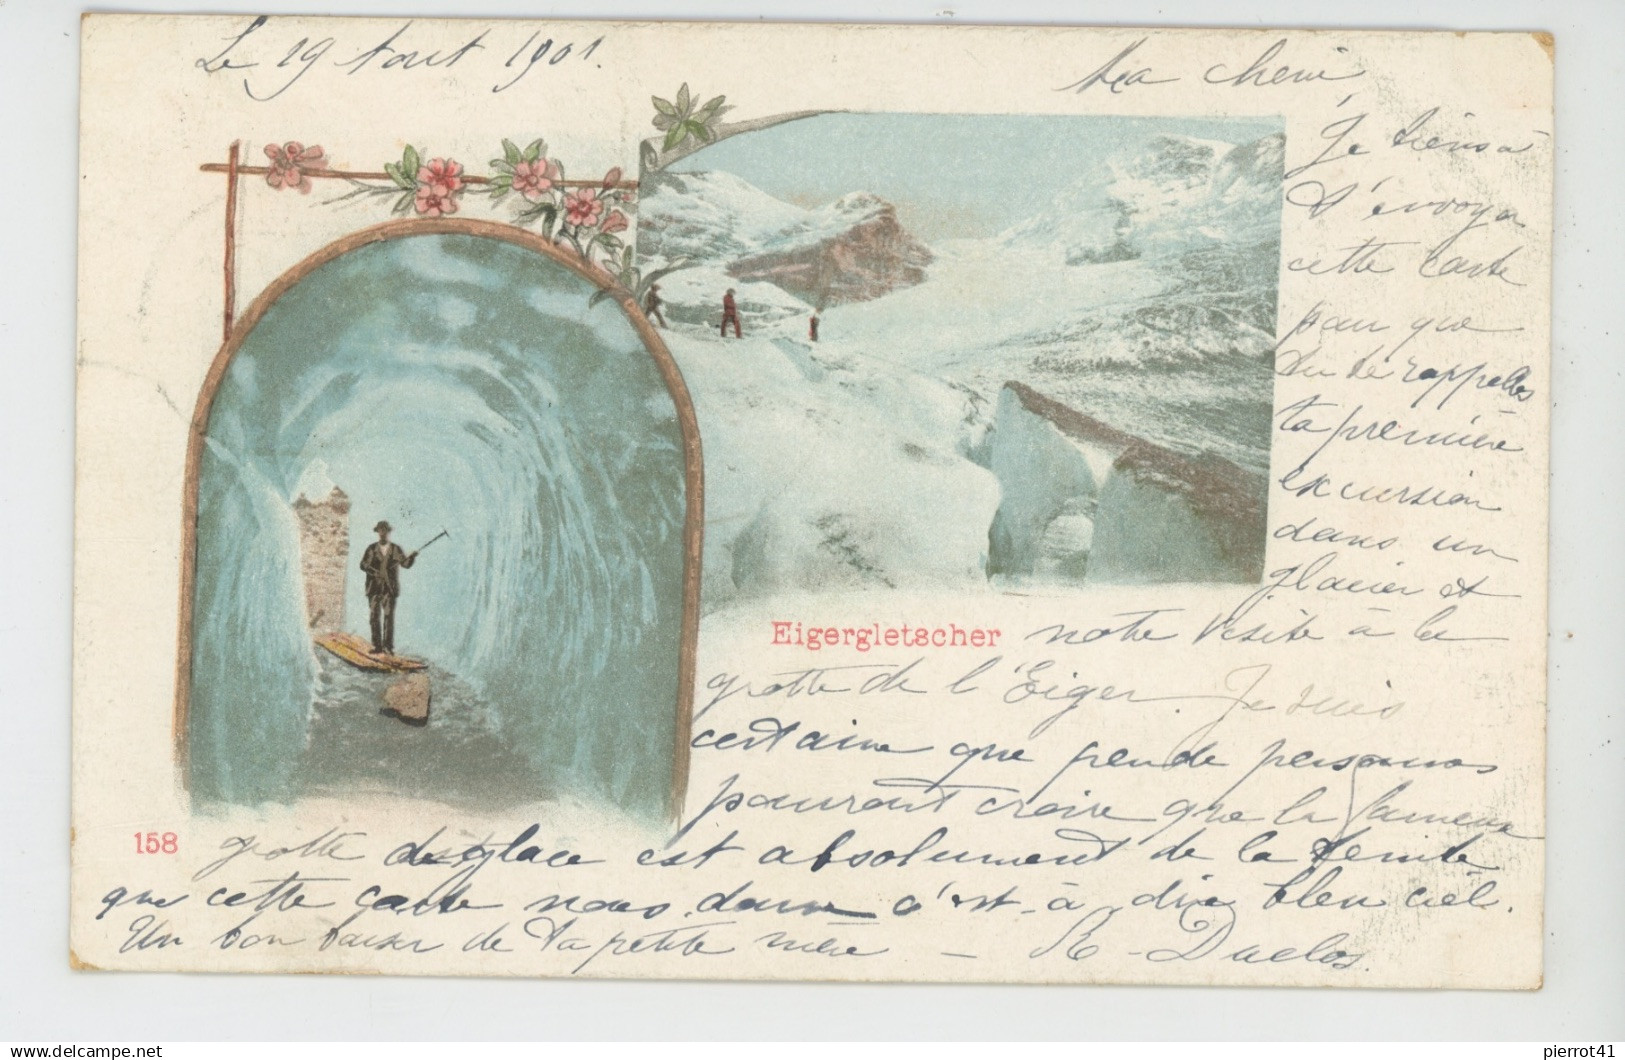 Le 19 Aout 1901.
Ma cherie
Je tiens à
t'envoyer
cette carte
pour que
tu te rappelles
ta première
excursion
dans un
glacier et
Eigergletscher
notre visite à la
grotte de l'Eiger. Je suis
certaine que peu de personnes
pourront croire que la fameuse
158
grotte de glace est absolument de la teinte
que cette carte nous donne c'est-à dire bleu ciel.
Un bon baiser de ta petite mère — R. Duclos.
pierrot41
delcampe.net